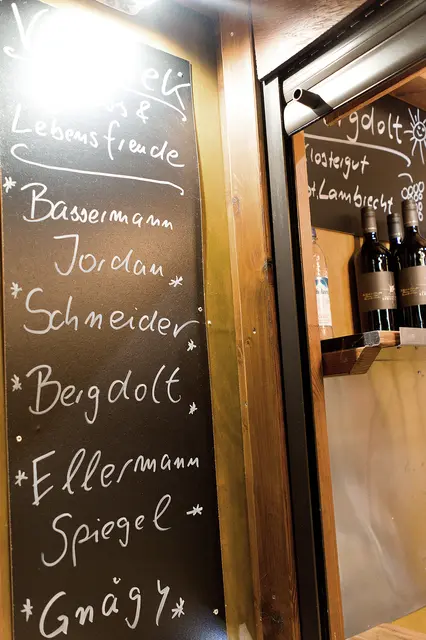 & 
Lebensfreude
* Bassermann
Jordan *
* Schneider *
* Bergdolt *
* Ellermann
Spiegel *
* Gnägy *
Klostergut
St. Lambrecht